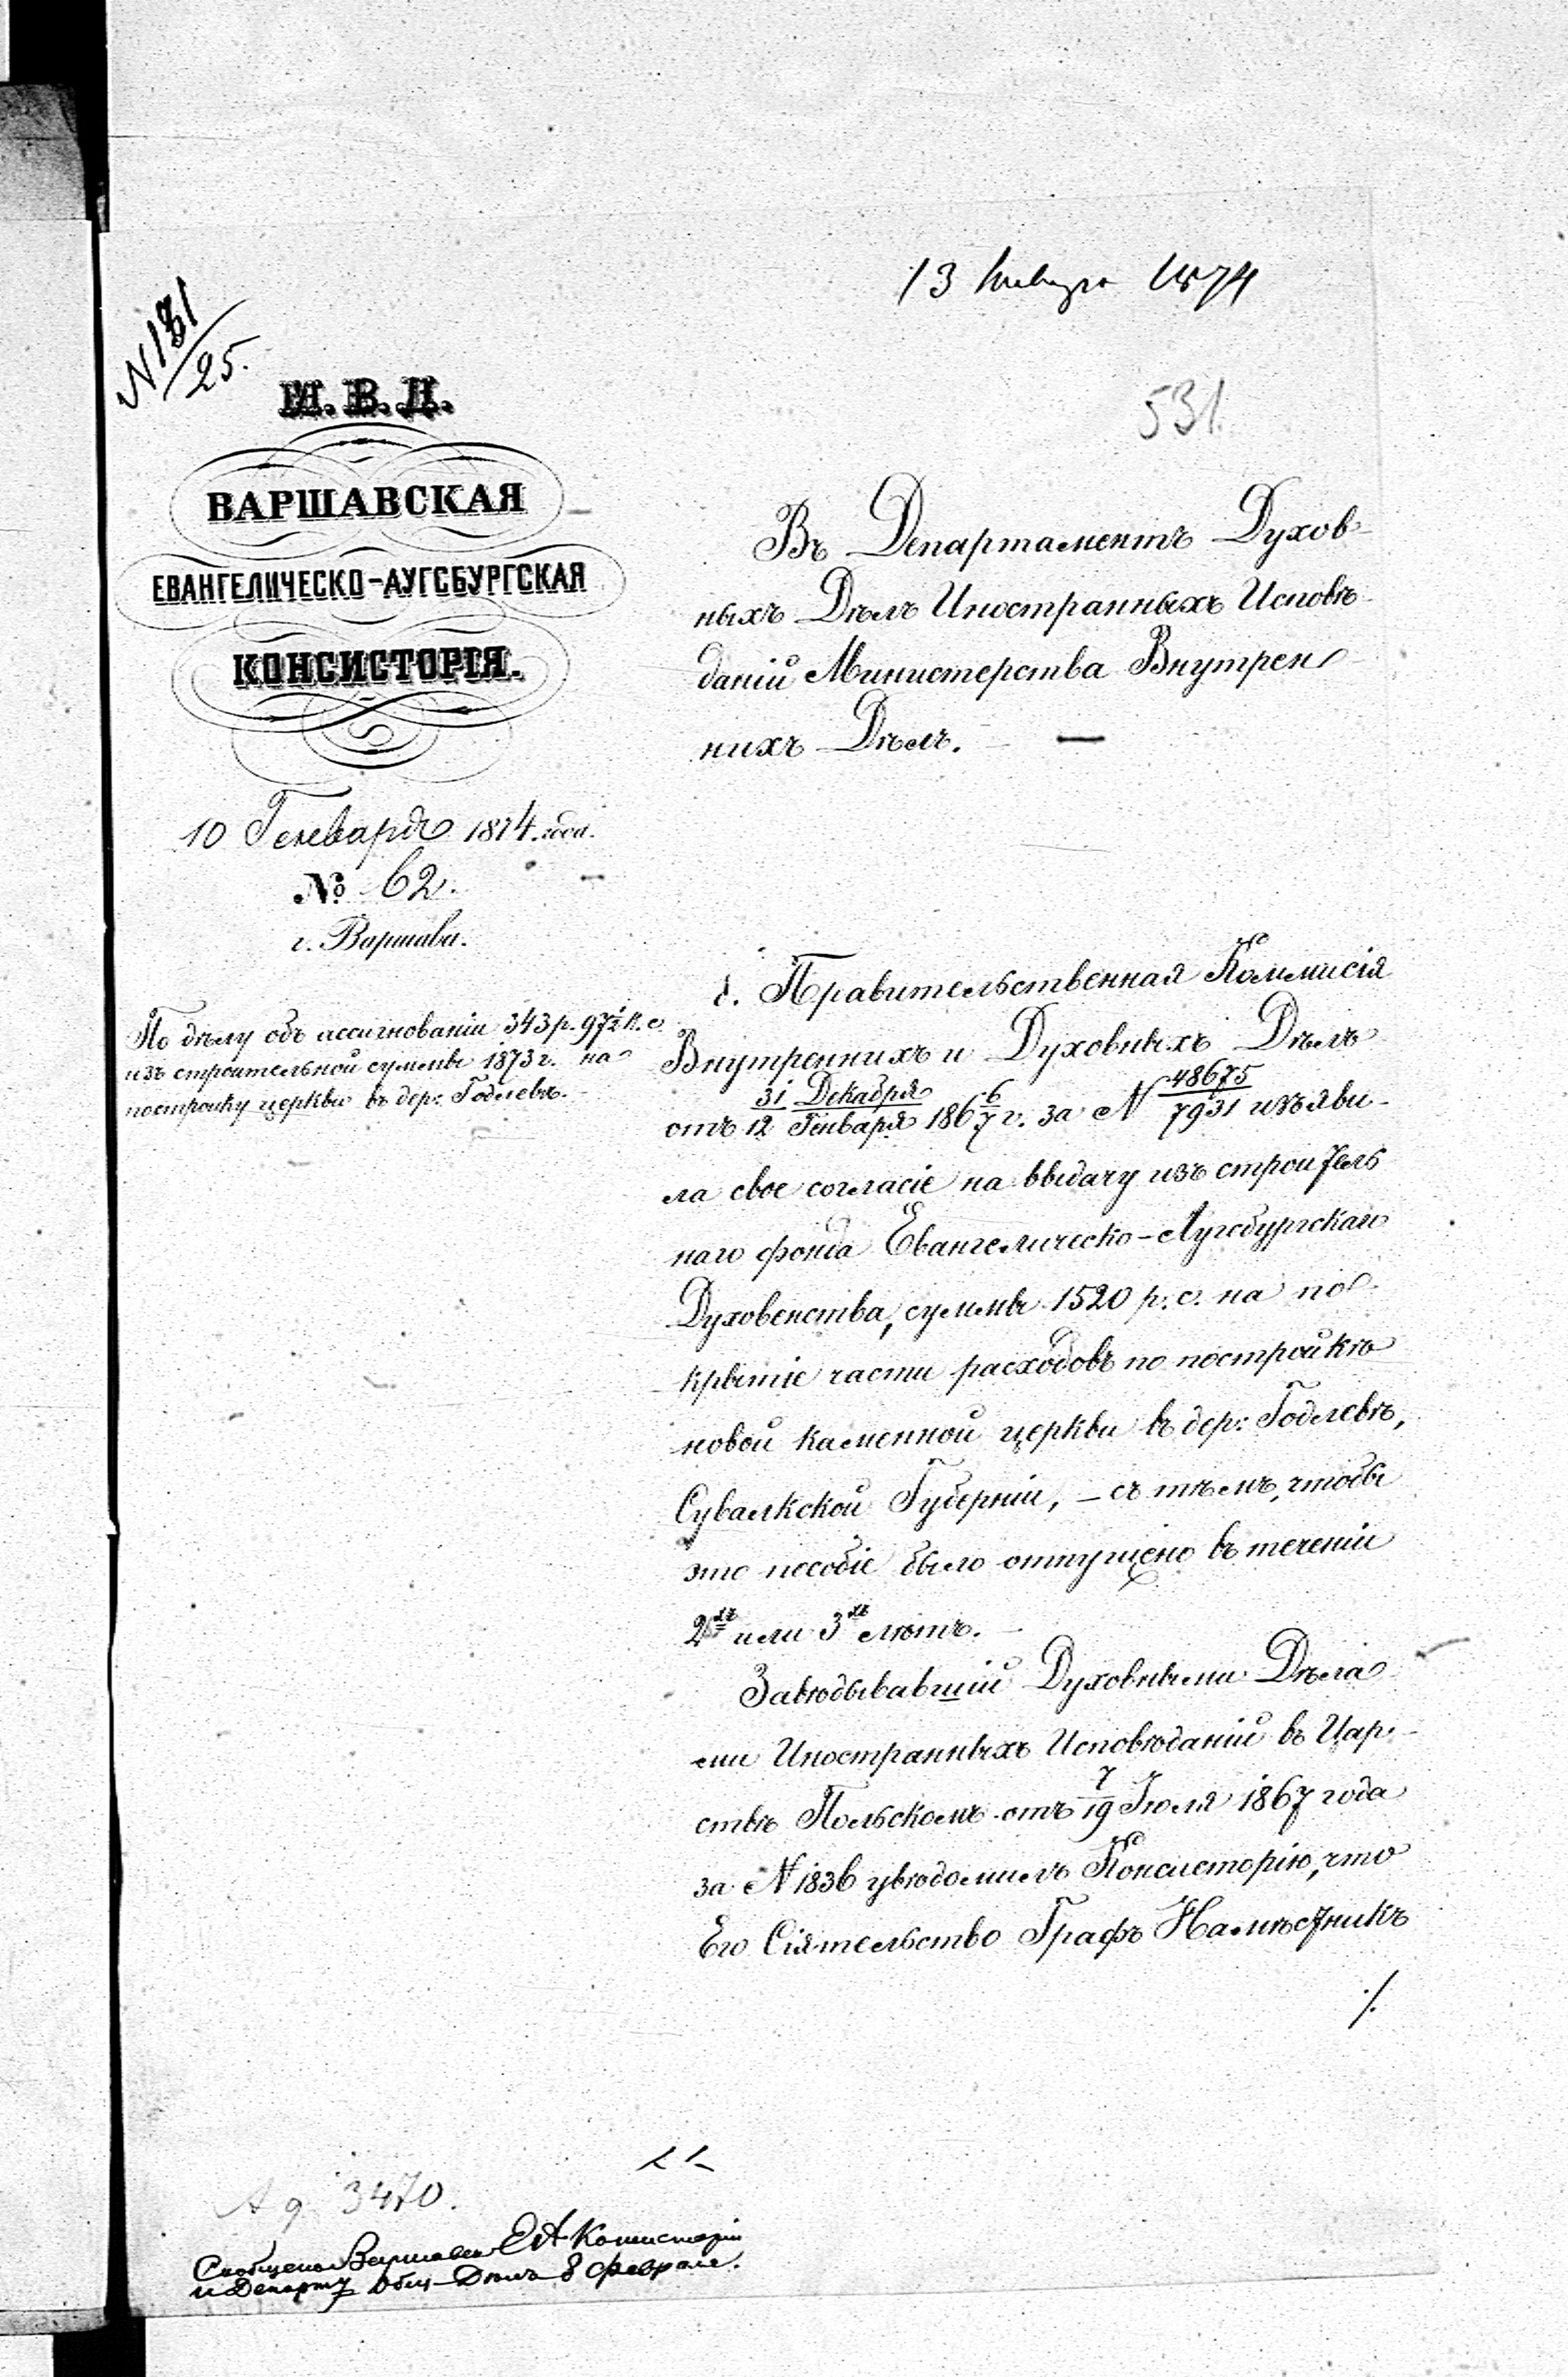 13 Января 1874
N 181/25.
531.
М. В. Д.
ВАРШАВСКАЯ
ЕВАНГЕЛИЧЕСКО-АУГСБУРГСКАЯ
КОНСИСТОРІЯ.
10 Генваря 1874 года.
№ 62.
г. Варшава.
По дѣлу объ ассигнованіи 343 р. 97½ к. с.
изъ строительной суммы 1873 г. на
постройку церкви въ дер: Годлевѣ.
Въ Департаментъ Духов-
ныхъ Дѣлъ Иностранныхъ Исповѣ-
даній Министерства Внутрен-
нихъ Дѣлъ. —
б. Правительственная Коммисія
Внутреннихъ и Духовныхъ Дѣлъ
отъ 31 Декабря/12 Генваря 186 6/7 г. за N 48675/7931 изъяви-
ла свое согласіе на выдачу изъ строитель
наго фонда Евангелическо-Аугсбургскаго
Духовенства, суммы 1520 р. с. на по-
крытіе части расходовъ по постройкѣ
новой каменной церкви въ дер: Годлевѣ,
Сувалкской Губерніи, – съ тѣмъ, чтобы
это пособіе было отпущено въ теченіи
2хъ или 3хъ лѣтъ. –
Завѣдывавшій Духовными Дѣла-
ми Иностранныхъ Исповѣданій въ Цар-
ствѣ Польскомъ отъ 7/19 Іюля 1867 года
за N 1836 увѣдомилъ Консисторію, что
Его Сіятельство Графъ Намѣстникъ
./.
3470.
Сообщено Варшавск ЕА Консисторіи
и Департ Общ Дѣлъ 8 Февраля.